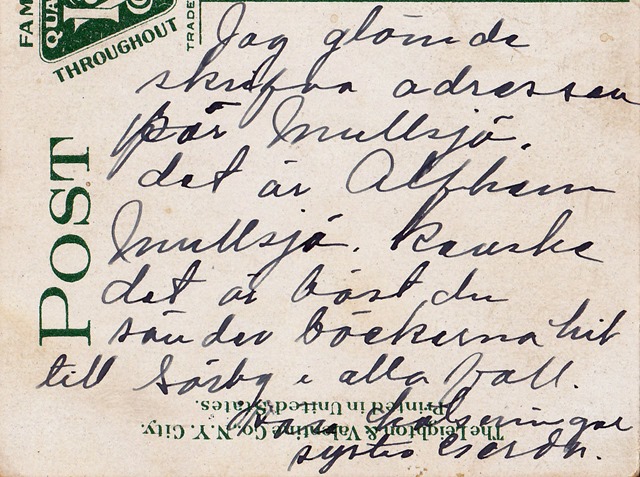 FAM
QUA
THROUGHOUT
TRADE
POST
Jag glömde
skrifva adressen
på Mullsjö.
det är Alfhem
Mullsjö. kanske
det är bäst du
sänder böckerna hit
till Sörby i alla fall.
Kära hälsningar
syster Gerda.
The Leighton & Valentine Co., N.Y. City.
Printed in United States.